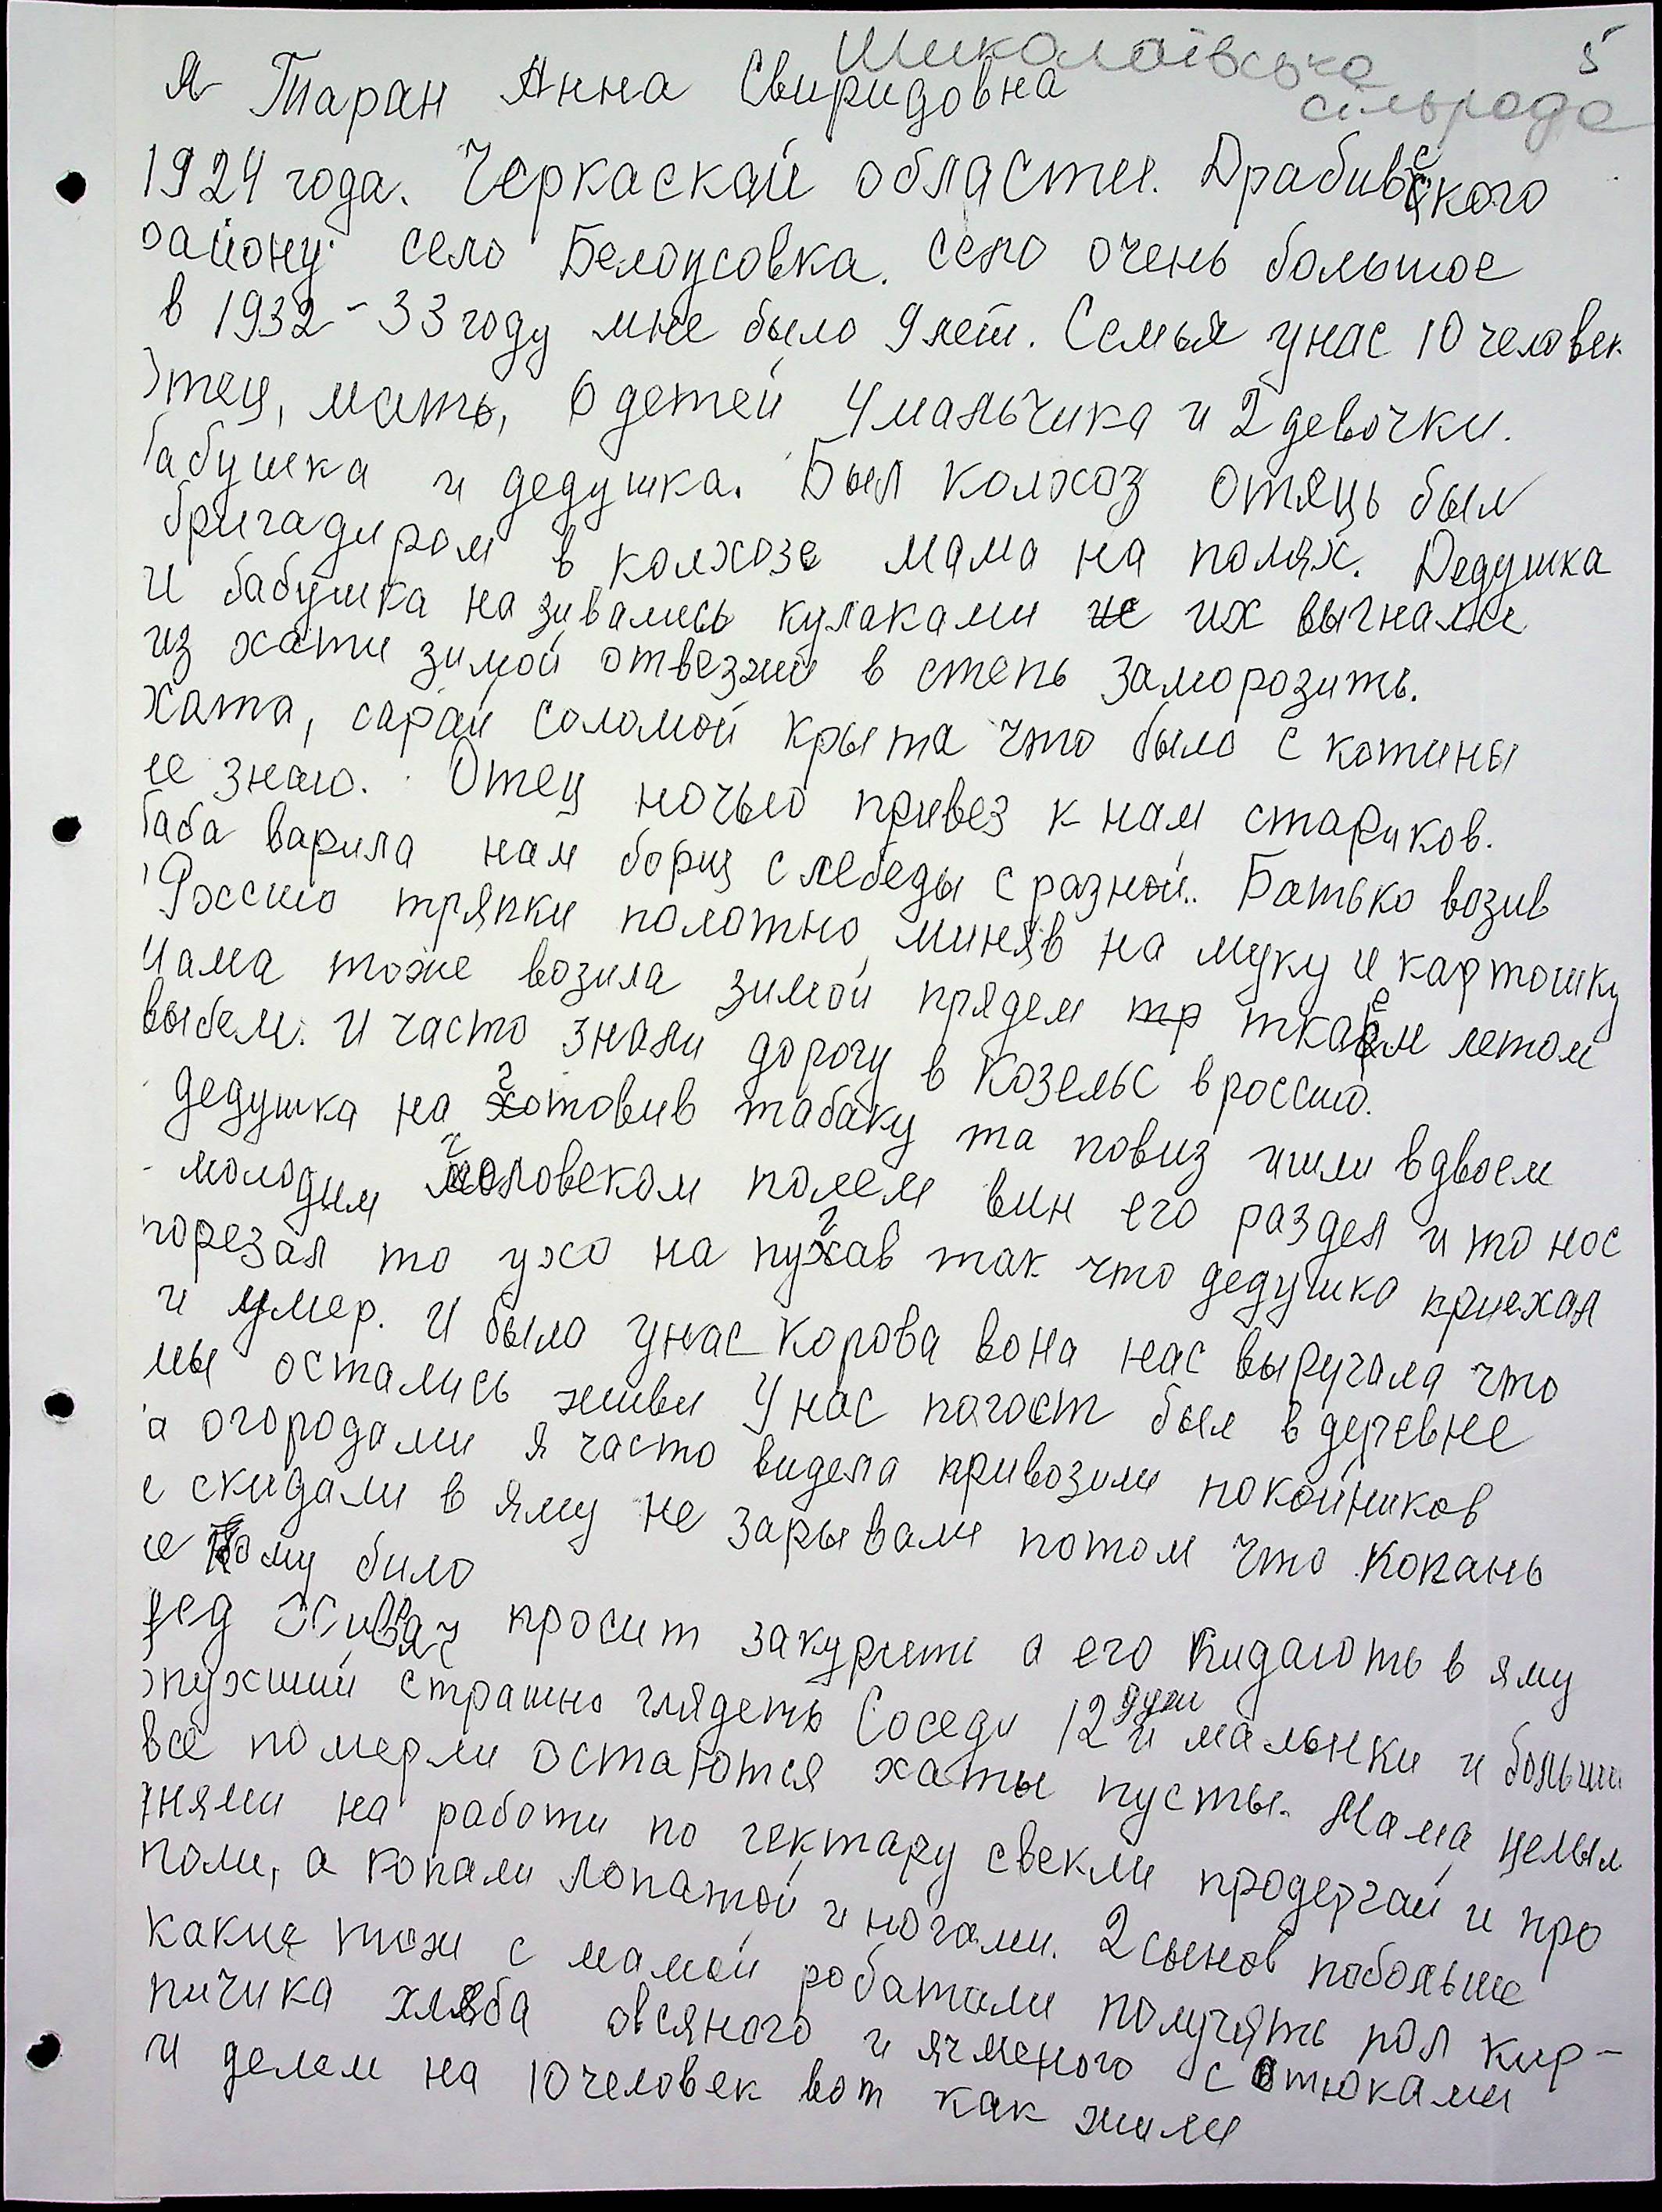 Миколаївська 5
сільрада
Я Таран Анна Свиридовна
1924 года. Черкаскай области. Драбивского
району село Белоусовка. село очень большое
в 1932-33 году мне было 9 лет. Семья унас 10 человек
Отец, мать, 6 детей 4 мальчика и 2 девочки.
бабушка и дедушка. Был колхоз отяць был
бригадиром в колхозе мама на полях. Дедушка
и бабушка називались кулаками их выгнали
из хати зимой отвезли в степь заморозить.
Хата, сарай соломой крыта что было с котины
не знаю. Отец ночью привез к нам стариков.
баба варила нам борщ с лебеды с разной.. Батько возив
Россию тряпки полотно миняв на муку и картошку
мама тоже возила зимой прядем тр ткаем летом
выбем. И часто знали дорогу в Козельс в россию.
дедушка на готовив табаку та повиз ишли вдвоем
молодим человеком полем вин его раздел и то нос
порезал то ухо на пугав так что дедушка приехал
и умер. И было унас корова вона нас выручала что
мы остались живи У нас погост был в деревне
а огородами я часто видела привозили покойников
и скидали в яму не зарывали потом что копань
не кому било
дед просит закурить а его кидають в яму
опухший страшно глядеть Соседи 12 души и маленки и больши
все померли остаются хаты пусты. Мама целым
днями на работи по гектару свекли продергай и про
поли, а копали лопатой и ногами. 2 сынов побольше
какие тож с мамой робатали получять пол кир-
пичика хляба овсяного и ячменого с отюками
и делем на 10 человек вот как жили